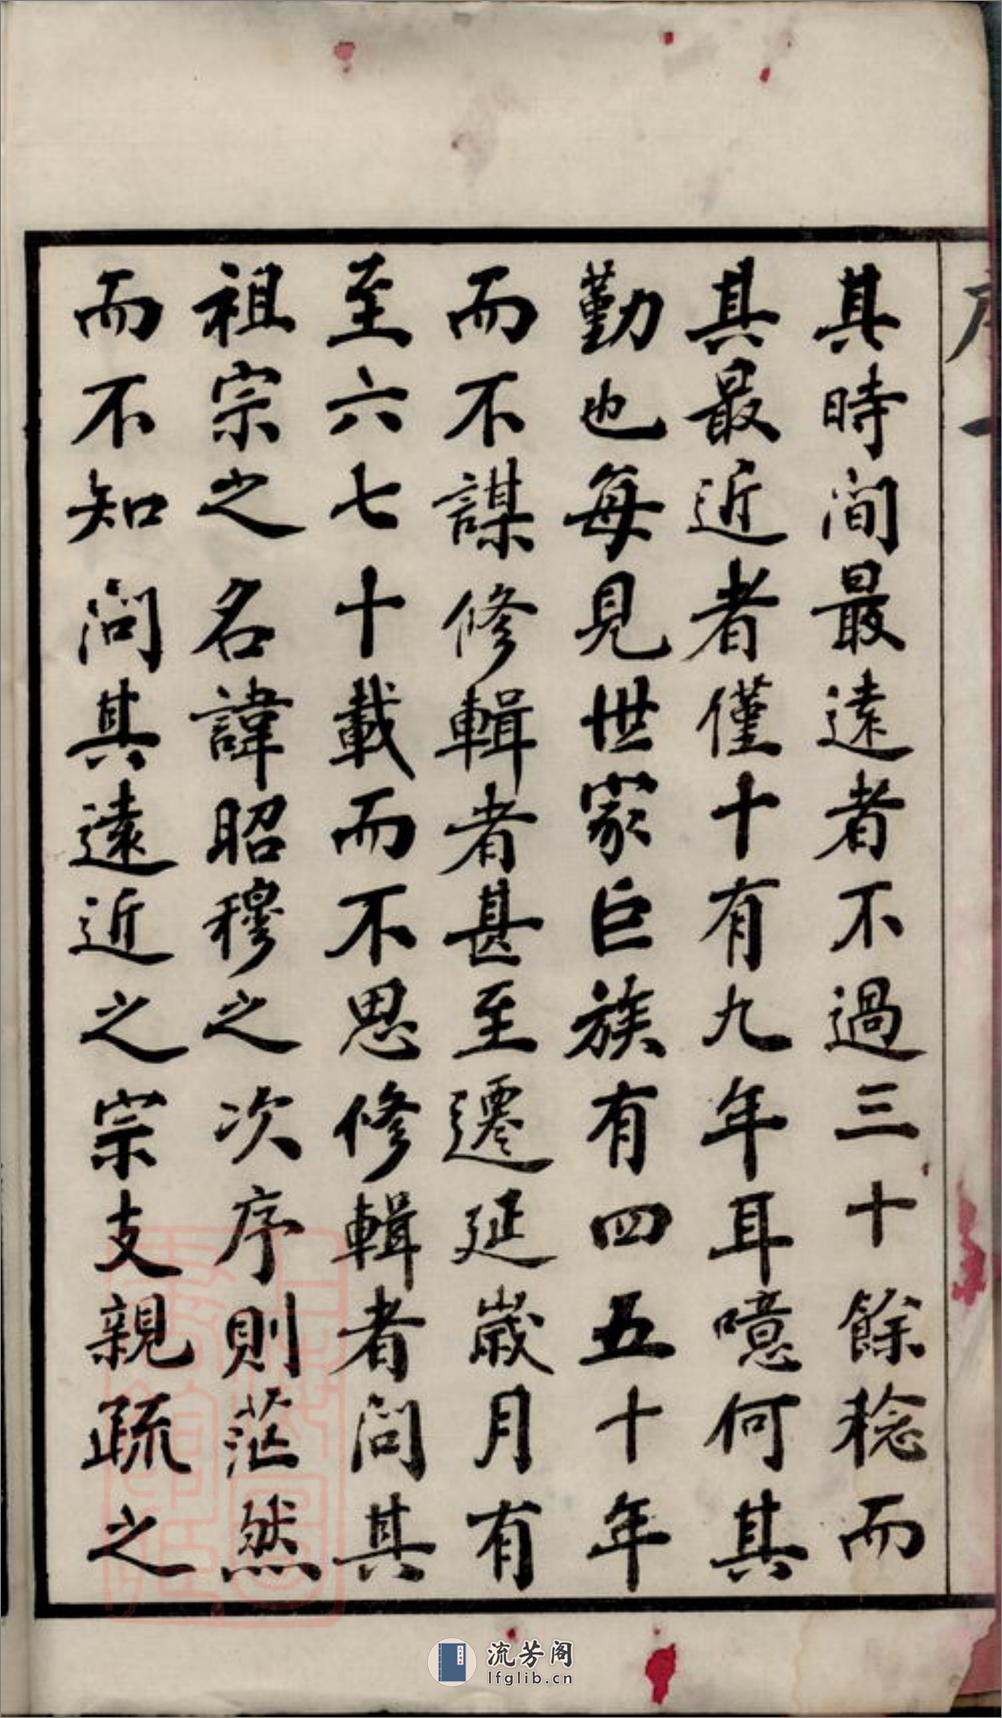 其時間最遠者不過三十餘稔而
其最近者僅十有九年耳噫何其
勤也每見世家巨族有四五十年
而不謀修輯者甚至遷延歲月有
至六七十載而不思修輯者問其
祖宗之名諱昭穆之次序則茫然
而不知問其遠近之宗支親疏之
流芳阁
lfglib.cn